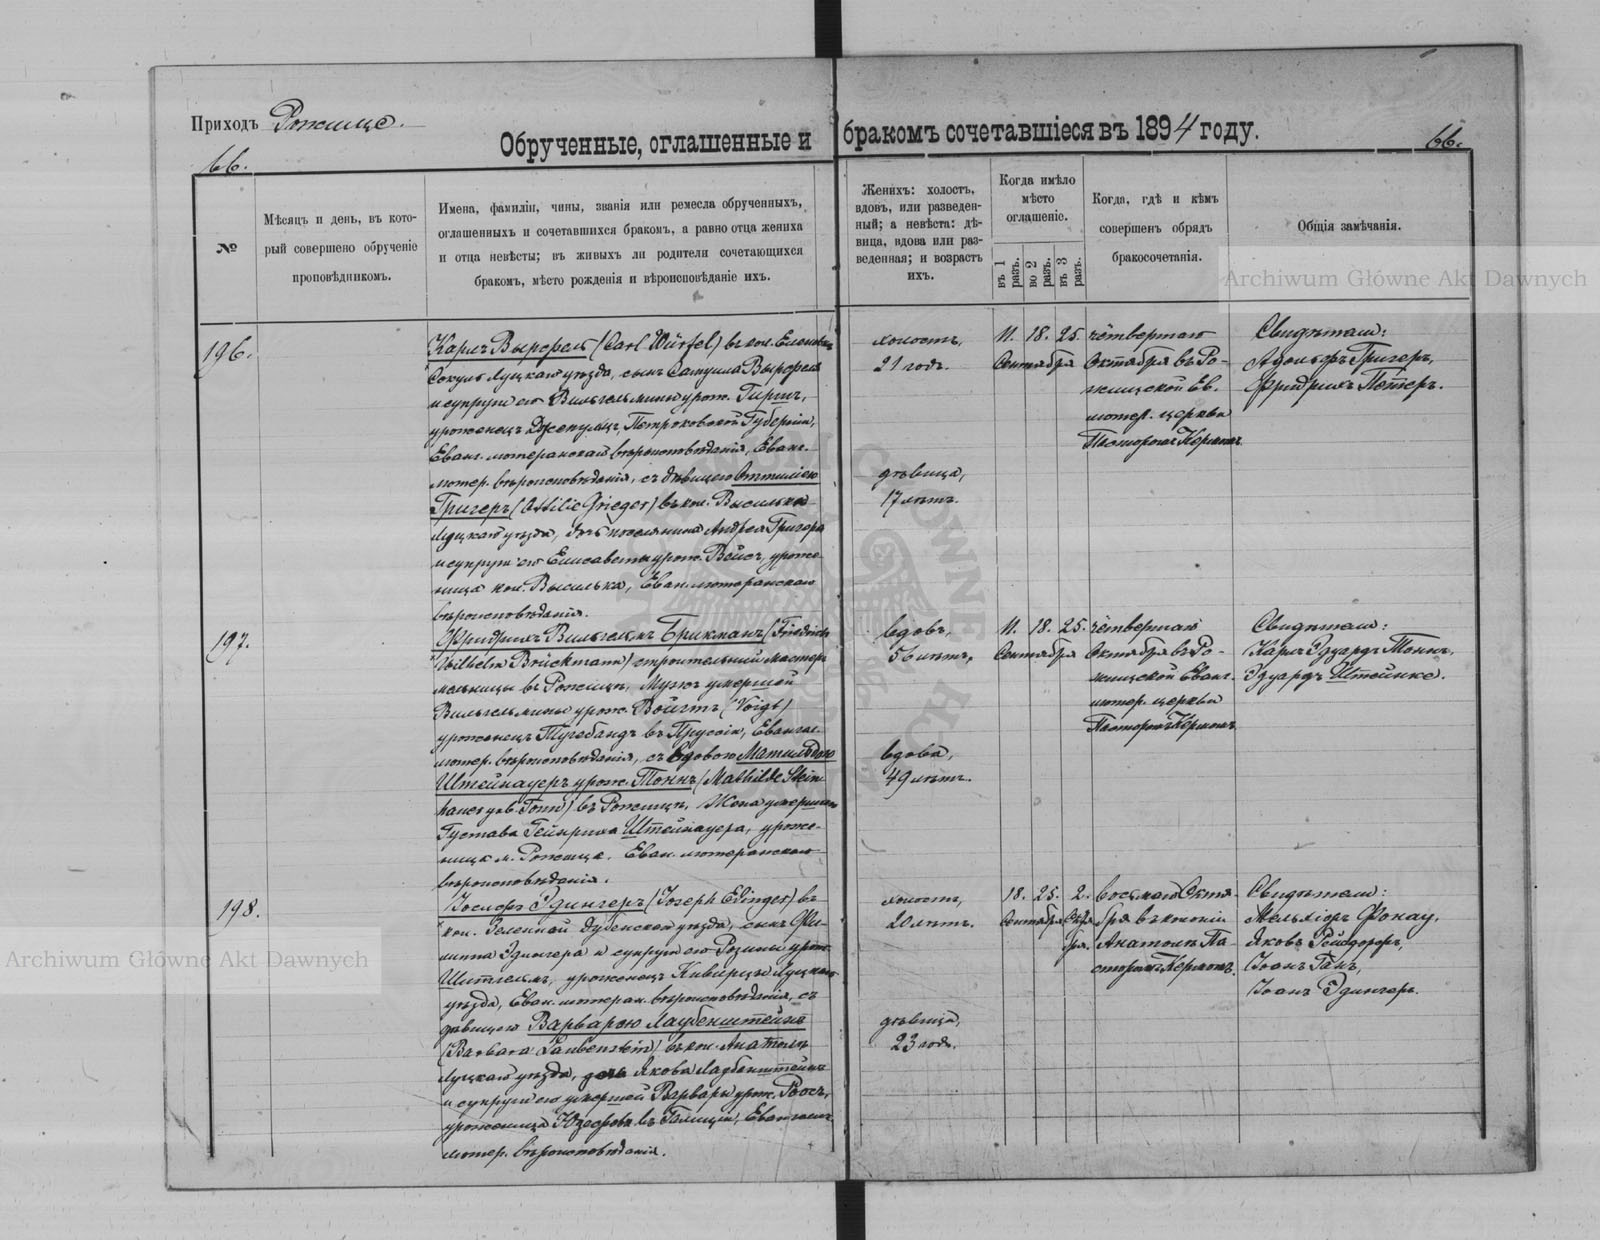 Приходъ Рожище.
Обрученные, оглашенные и бракомъ сочетавшіеся въ 1894 году.
66.
66.
№
Мѣсяцъ и день, въ кото-
рый совершено обрученіе
проповѣдникомъ.
Имена, фамиліи, чины, званія или ремесла обрученныхъ,
оглашенныхъ и сочетавшихся бракомъ, а равно отца жениха
и отца невѣсты; въ живыхъ ли родители сочетающихся
бракомъ, мѣсто рожденія и вѣроисповѣданіе ихъ.
Женихъ: холостъ,
вдовъ, или разведен-
ный; а невѣста: дѣ-
вица, вдова или раз-
веденная; и возрастъ
ихъ.
Когда имѣло
мѣсто
оглашеніе.
въ 1 разъ.
во 2 разъ.
въ 3 разъ.
Когда, гдѣ и кѣмъ
совершенъ обрядъ
бракосочетанія.
Общія замѣчанія.
196.
Карлъ Вырфель (Carl Würfel) въ кол.
Сокулъ Луцкаго уѣзда, сынъ Самуила Вырфеля
и супруги его Вильгельмины урож.
уроженецъ Петроковской Губерніи,
Еванг. лютеранскаго вѣроисповѣданія, Еванг.
лютер. вѣроисповѣданія, съ дѣвицею Оттиліею
Григеръ (Ottilie Grieger) въ кол. Высилька
Луцкаго уѣзда, дочь поселянина Андрея Григера
и супруги его Елисаветы урож. Вейсъ, уроже-
ница кол. Высилька, Еван. лютеранскаго
вѣроисповѣданія.
холостъ,
21 годъ.
дѣвица,
17 лѣтъ.
11. 18. 25.
Сентября
четвертаго
Октября въ Ро-
жищской Ев.
лютер. церкви
Пасторомъ Керномъ
Свидѣтели:
Адольфъ Григеръ,
Фридрихъ Петеръ.
197.
Фридрихъ Вильгельмъ Брикманъ (Friedrich
Wilhelm Brückmann) строительный мастеръ
мельницы въ Рожищѣ, Мужъ умершей
Вильгельмины урож. Войгтъ (Voigt)
уроженецъ въ Пруссіи, Евангел.
лютер. вѣроисповѣданія, съ вдовою Матильдою
Штейнауеръ урож. Тоннъ (Mathilde Stein-
hauer geb. Tonn) въ Рожищѣ, Жена умершаго
Густава Гейнриха Штейнауера, уроже-
ница м. Рожища. Еван. лютеранскаго
вѣроисповѣданія.
вдовъ,
56 лѣтъ,
вдова,
49 лѣтъ.
11. 18. 25.
Сентября
четвертаго
Октября въ Ро-
жищской Еванг.
лютер. церкви
Пасторомъ Керномъ
Свидѣтели:
Карлъ Эдуардъ Тоннъ,
Эдуардъ Штейнке.
198.
Іосифъ Эдингеръ (Joseph Edinger) въ
кол. Зеленной Дубенскаго уѣзда, сынъ Фи-
липпа Эдингера и супруги его Розины урож.
уроженецъ Киверцы Луцкаго
уѣзда, Еван. лютеран. вѣроисповѣданія, съ
дѣвицею Варварою Лаубенштейнъ
(Barbara Laubenstein) въ кол. Анатоль
Луцкаго уѣзда, дочь Якова Лаубенштейнъ
и супруги его умершей Варвары урож. Роосъ,
уроженица въ Галиціи, Евангел.
лютер. вѣроисповѣданія.
холостъ,
20 лѣтъ.
дѣвица,
23 года.
18. 25. 2.
Сентября Октя-
бря.
восьмаго Октя-
бря въ колоніи
Анатоль Па-
сторомъ Керномъ
Свидѣтели:
Мельхіоръ Фонау,
Яковъ
Іоанъ Ганъ,
Іоанъ Эдингеръ.
Archiwum Główne Akt Dawnych
Archiwum Główne Akt Dawnych